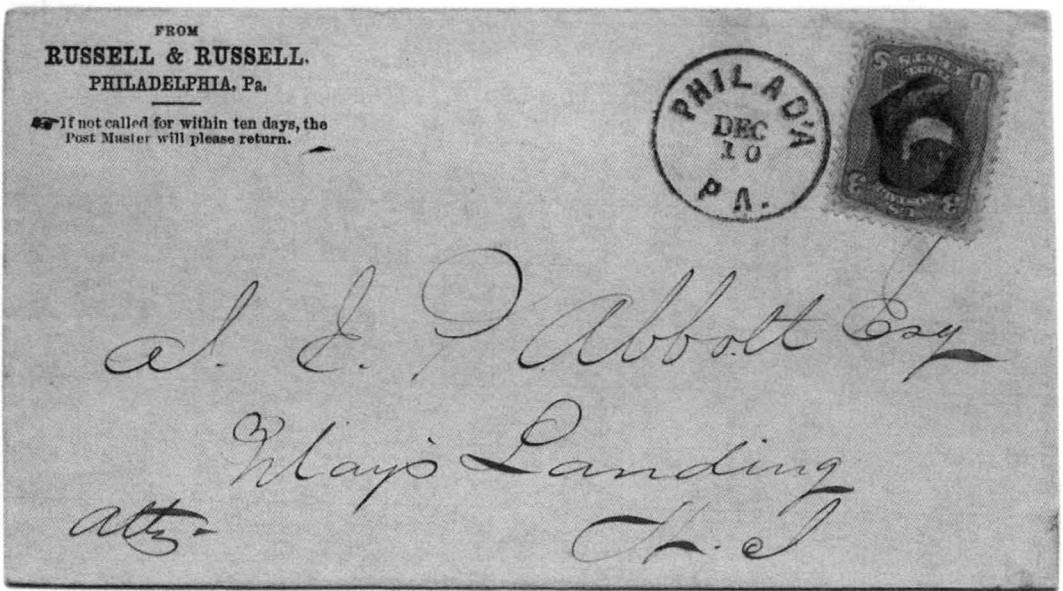 FROM
RUSSELL & RUSSELL.
PHILADELPHIA, Pa.
If not called for within ten days, the
Post Master will please return.
PHILAD'A
DEC
10
PA.
U S
3 3
J. E. P. Abbott Esq
Mays Landing
Atty. N. J